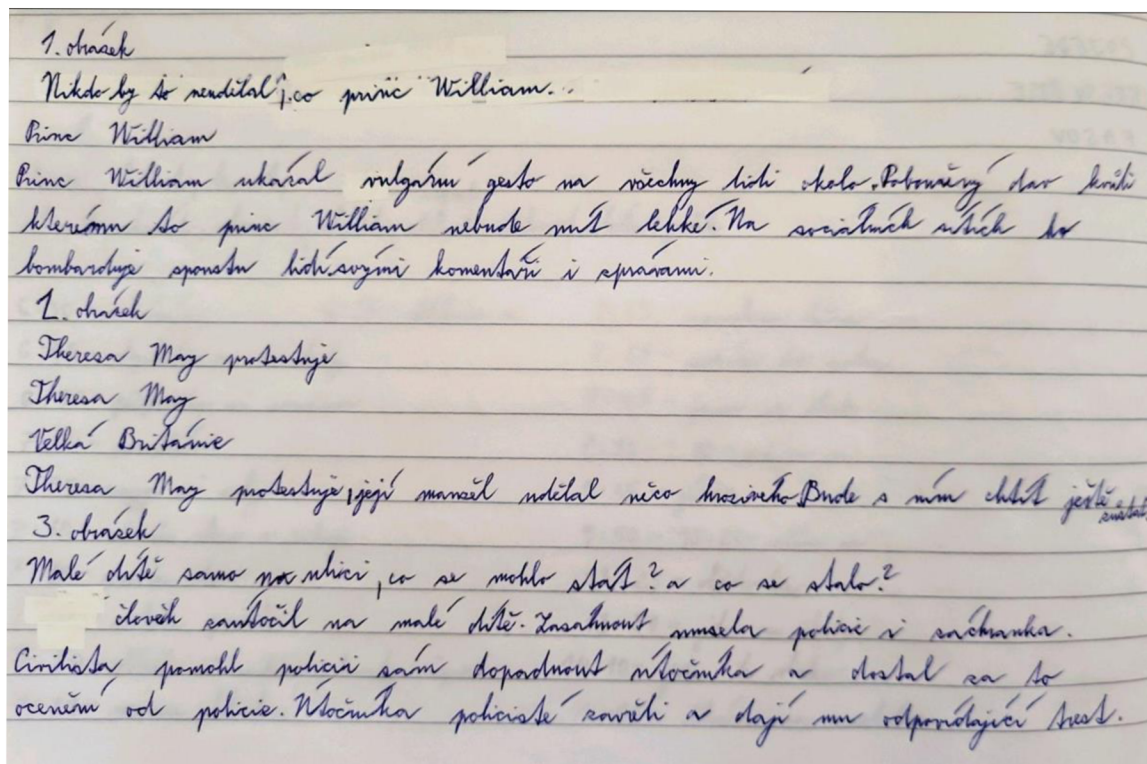 1. obrázek
Nikdo by to neudělal, co princ William...
Princ William
Princ William ukázal vulgární gesto na všechny lidi okolo. Pobouřený dav kvůli
kterému to princ William nebude mít lehké. Na sociálních sítích ho
bombarduje spoustu lidí svými komentáři i zprávami.
2. obrázek
Theresa May protestuje
Theresa May
Velká Británie
Theresa May protestuje, její manžel udělal něco hrozivého. Bude s ním chtít ještě zůstat
3. obrázek
Malé dítě samo na ulici, co se mohlo stát? a co se stalo?
člověk zaútočil na malé dítě. Zasáhnout musela policie i záchranka.
Civilista pomohl policii sám dopadnout útočníka a dostal za to
ocenění od policie. Útočníka policisté zavřeli a dají mu odpovídající trest.